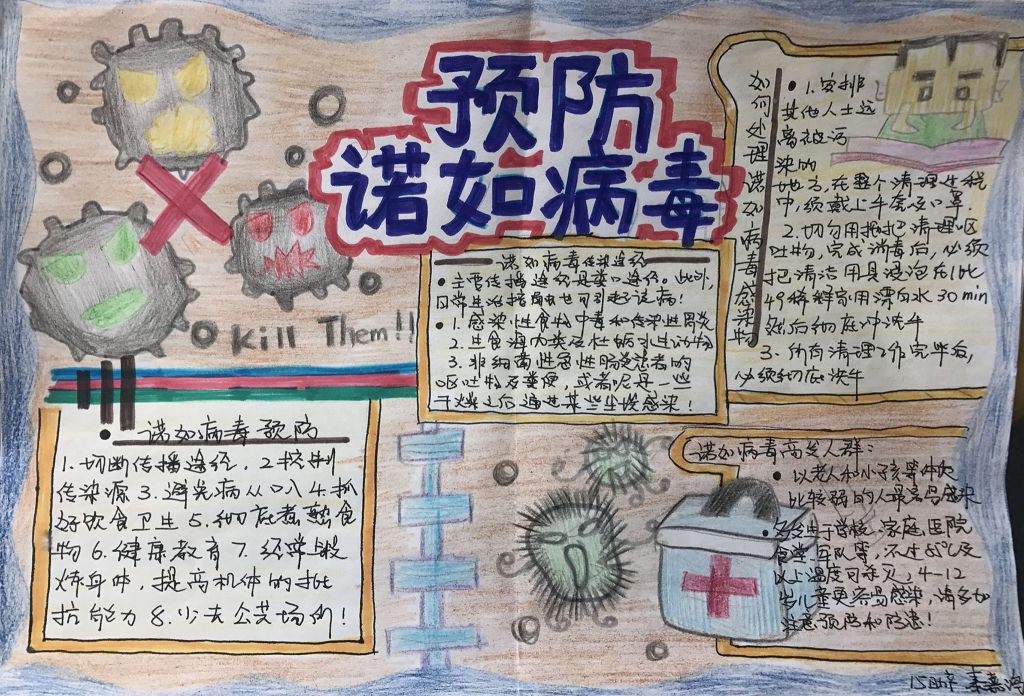 预防
诺如病毒
Kill Them!!
诺如病毒传染途径
主要传播途径是粪口途径。此外,
日常生活接触也可引起该病!
1.感染性食物中毒和传染性胃炎
2.生食海内类及牡蛎水生动物
3.非细菌性急性肠炎患者的
呕吐物及粪便,或者尼丹一些
干燥之后通过某些尘埃感染!
如何处理诺如病毒感染物
1.安排
其他人士远
离被污
染的
地方,在整个清理过程
中,须戴上手套及口罩.
2.切勿用拖把清理呕
吐物,完成消毒后,必须
把清洁用具浸泡在1比
49稀释家用漂白水30min
然后彻底冲洗手
3.所有清理工作完毕后,
必须彻底洗手
诺如病毒预防
1.切断传播途径,2控制
传染源3.避免病从口入4.抓
好饮食卫生5.彻底煮熟食
物6.健康教育7.经常锻
炼身体,提高机体的抵
抗能力8.少去公共场所!
诺如病毒高发人群:
以老人和小孩等体质
比较弱的人最容易感染
多发生于学校、家庭医院
食堂军队等,不过85℃及
以上温度可杀灭,4-12
岁儿童更容易感染,请多加
注意预防和防患!